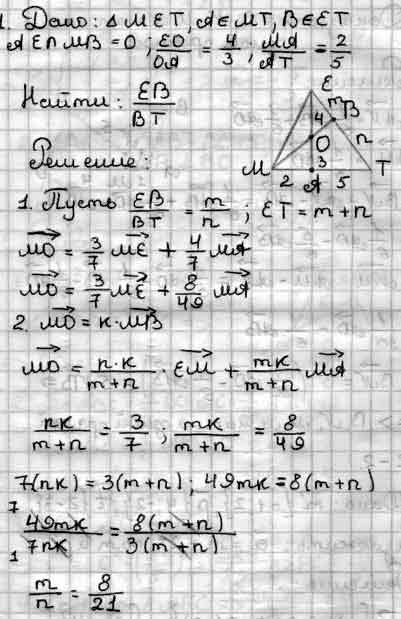 1. Дано: △ MET, A∈MT, B∈ET
AE∩MB=O; EO/OA = 4/3; MA/AT = 2/5
Найти: EB/BT
Решение:
E
m
B
4
O
n
3
M
2
A
5
T
1. Пусть EB/BT = m/n; ET = m+n
MO→ = 3/7 ME→ + 4/7 MA→
MO→ = 3/7 ME→ + 8/49 MA→
2. MO→ = k·MB→
MO→ = n·k/(m+n) · EM→ + mk/(m+n) MA→
nk/(m+n) = 3/7; mk/(m+n) = 8/49
7(nk) = 3(m+n); 49mk = 8(m+n)
7 49mk / 1 7nk = 8(m+n)/3(m+n)
m/n = 8/21